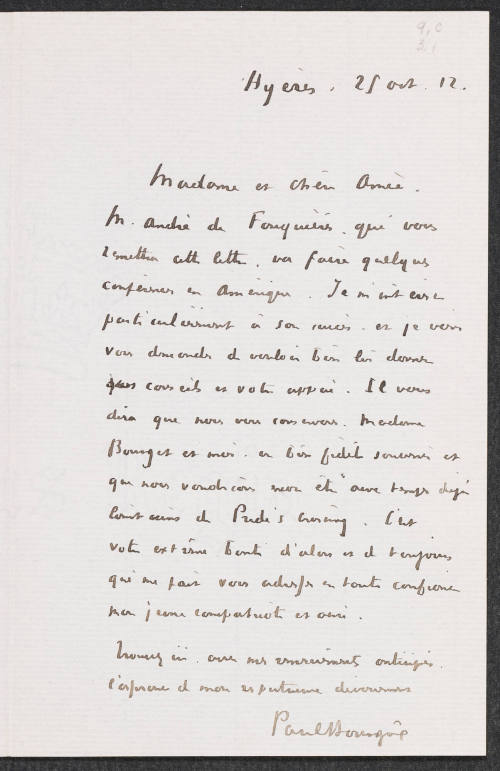 9,0
21
Hyères, 25 oct. 12.
Madame et chère Amie.
M. André de Fouquières, qui vous
remettra cette lettre, va faire quelques
conférences en Amérique. Je m'intéresse
particulièrement à son succès et je viens
vous demander de vouloir bien lui donner
vos conseils et votre appui. Il vous
dira que nous vous conservons, Madame
Bourget et moi, un bien fidèle souvenir et
que nous voudrions encore être aux temps déjà
lointains de Pride's Crossing. C'est
votre extrême bonté d'alors et de toujours
qui me fait vous adresser en toute confiance
mon jeune compatriote et ami.
Trouvez ici, avec mes remerciements anticipés,
l'expression de mon respectueux dévouement
Paul Bourget